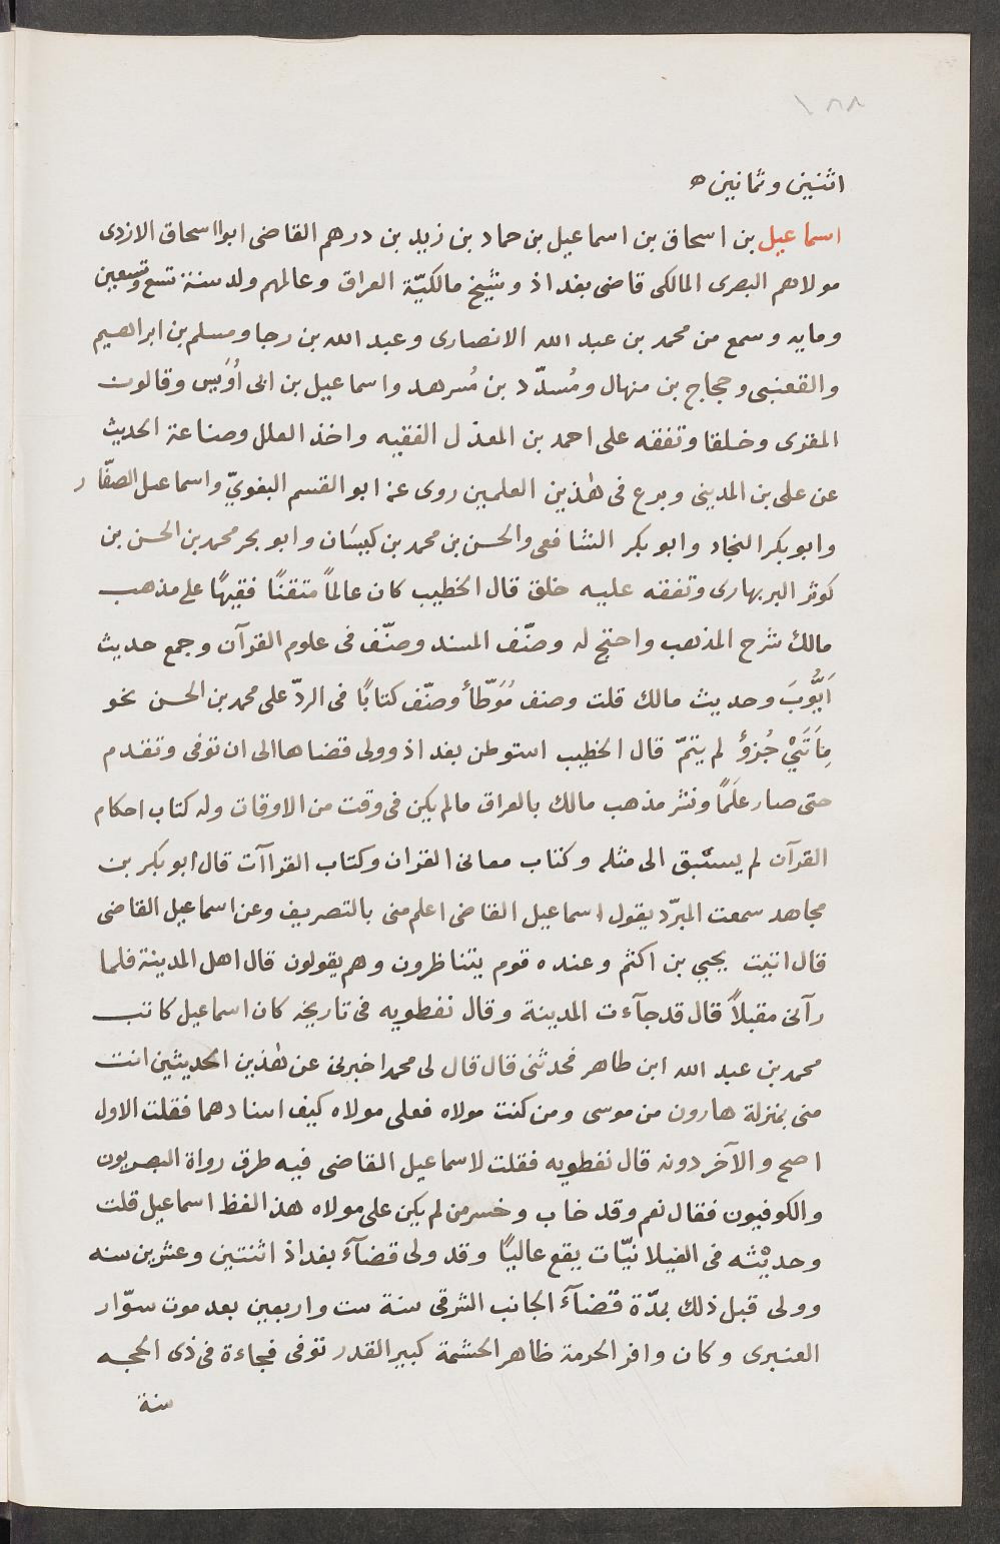 ١٨٨
اثنين وثمانين ه
اسماعيل بن اسحاق بن اسماعيل بن حماد بن زيد بن درهم القاضى ابوااسحاق الازدى
مولاهم البصرى المالكى قاضى بغداذ وشيخ مالكيّة العراق وعالمهم ولد سنة تسع وتسعين
ومايه وسمع من محمد بن عبد الله الانصارى وعبد الله بن رجا ومسلم بن ابراهيم
والقعنبى وحجاج بن منهال ومُسدّد بن مُسرهد واسماعيل بن ابى أوَيس وقالون
المقرى وخلقا وتفقه على احمد بن المعذل الفقيه واخذ العلل وصناعة الحديث
عن على بن المدينى وبرع فى هٰذين العلمين روى عنه ابو القسم البغويّ واسماعيل الصفّار
وابو بكر النجاد وابو بكر الشافعى والحسن بن محمد بن كيسَان وابو بحر محمد بن الحسن بن
كوثر البربهارى وتفقه عليه خلق قال الخطيب كان عالماً متقنًا فقيهًا على مذهب
مالك شرح المذهب واحتج له وصنّف المسند وصنّف فى علوم القرآن وجمع حديث
اَيُّوبَ وحديث مالك قلت وصنف مُوَطّأ وصنّف كتابًا فى الردّ على محمد بن الحسن نحو
مِاَتَيْ جُزؤ لم يتمّ قال الخطيب استوطن بغداذ وولى قضاها الى ان توفى وتقدم
حتى صار علَمًا ونشر مذهب مالك بالعراق مالم يكن فى وقت من الاوقات وله كتاب احكام
القرآن لم يسبق الى مثله وكتاب معانى القران وكتاب القراآت قال ابو بكر بن
مجاهد سمعت المبرّد يقول اسماعيل القاضى اعلم منى بالتصريف وعن اسماعيل القاضى
قال اتيت يحيي بن اكثم وعنده قوم يتناظرون وهم يقولون قال اهل المدينة فلما
رآنى مقبلاً قال قد جآءت المدينة وقال نفطويه فى تاريخه كان اسماعيل كاتب
محمد بن عبد الله ابن طاهر فحدثنى قال قال لى محمد اخبرنى عن هٰذين الحديثين انت
منى بمنزلة هارون من موسى ومن كنت مولاه فعلى مولاه كيف اسنادهما فقلت الاول
اصح والآخر دونه قال نفطويه فقلت لاسماعيل القاضى فيه طرق رواة البصريون
والكوفيون فقال نعم وقد خاب وخسر من لم يكن على مولاه هذ الفظ اسماعيل قلت
وحديْثه فى الغيلانيّات يقع عاليًا وقد ولى قضآء بغداذ اثنتين وعشرين سنه
وولى قبل ذلك بمدّة قضآء الجانب الشرقى سنة ست واربعين بعد موت سوّار
العنبرى وكان وافر الحرمة ظاهر الحشمة كبير القدر توفى فجاءة فى ذى الحجه
سنة